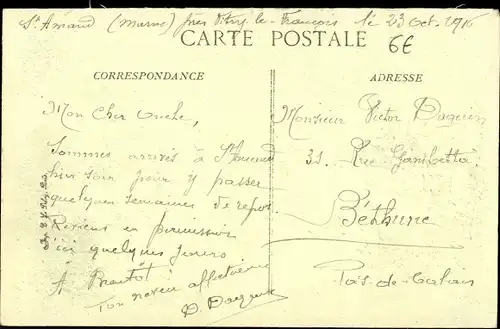 St Amand (Marne) près Vitry-le-François le 23 Oct. 1916
CARTE POSTALE
6€
CORRESPONDANCE
ADRESSE
Mon Cher Oncle,
Sommes arrivés à St Amand
hier soir pour y passer
quelques semaines de repos.
Reviens en permission
d'ici quelques jours
A Bientôt
Ton neveu affectionné
Monsieur Victor Daquin
31. Rue Gambetta
Béthune
Pas-de-Calais